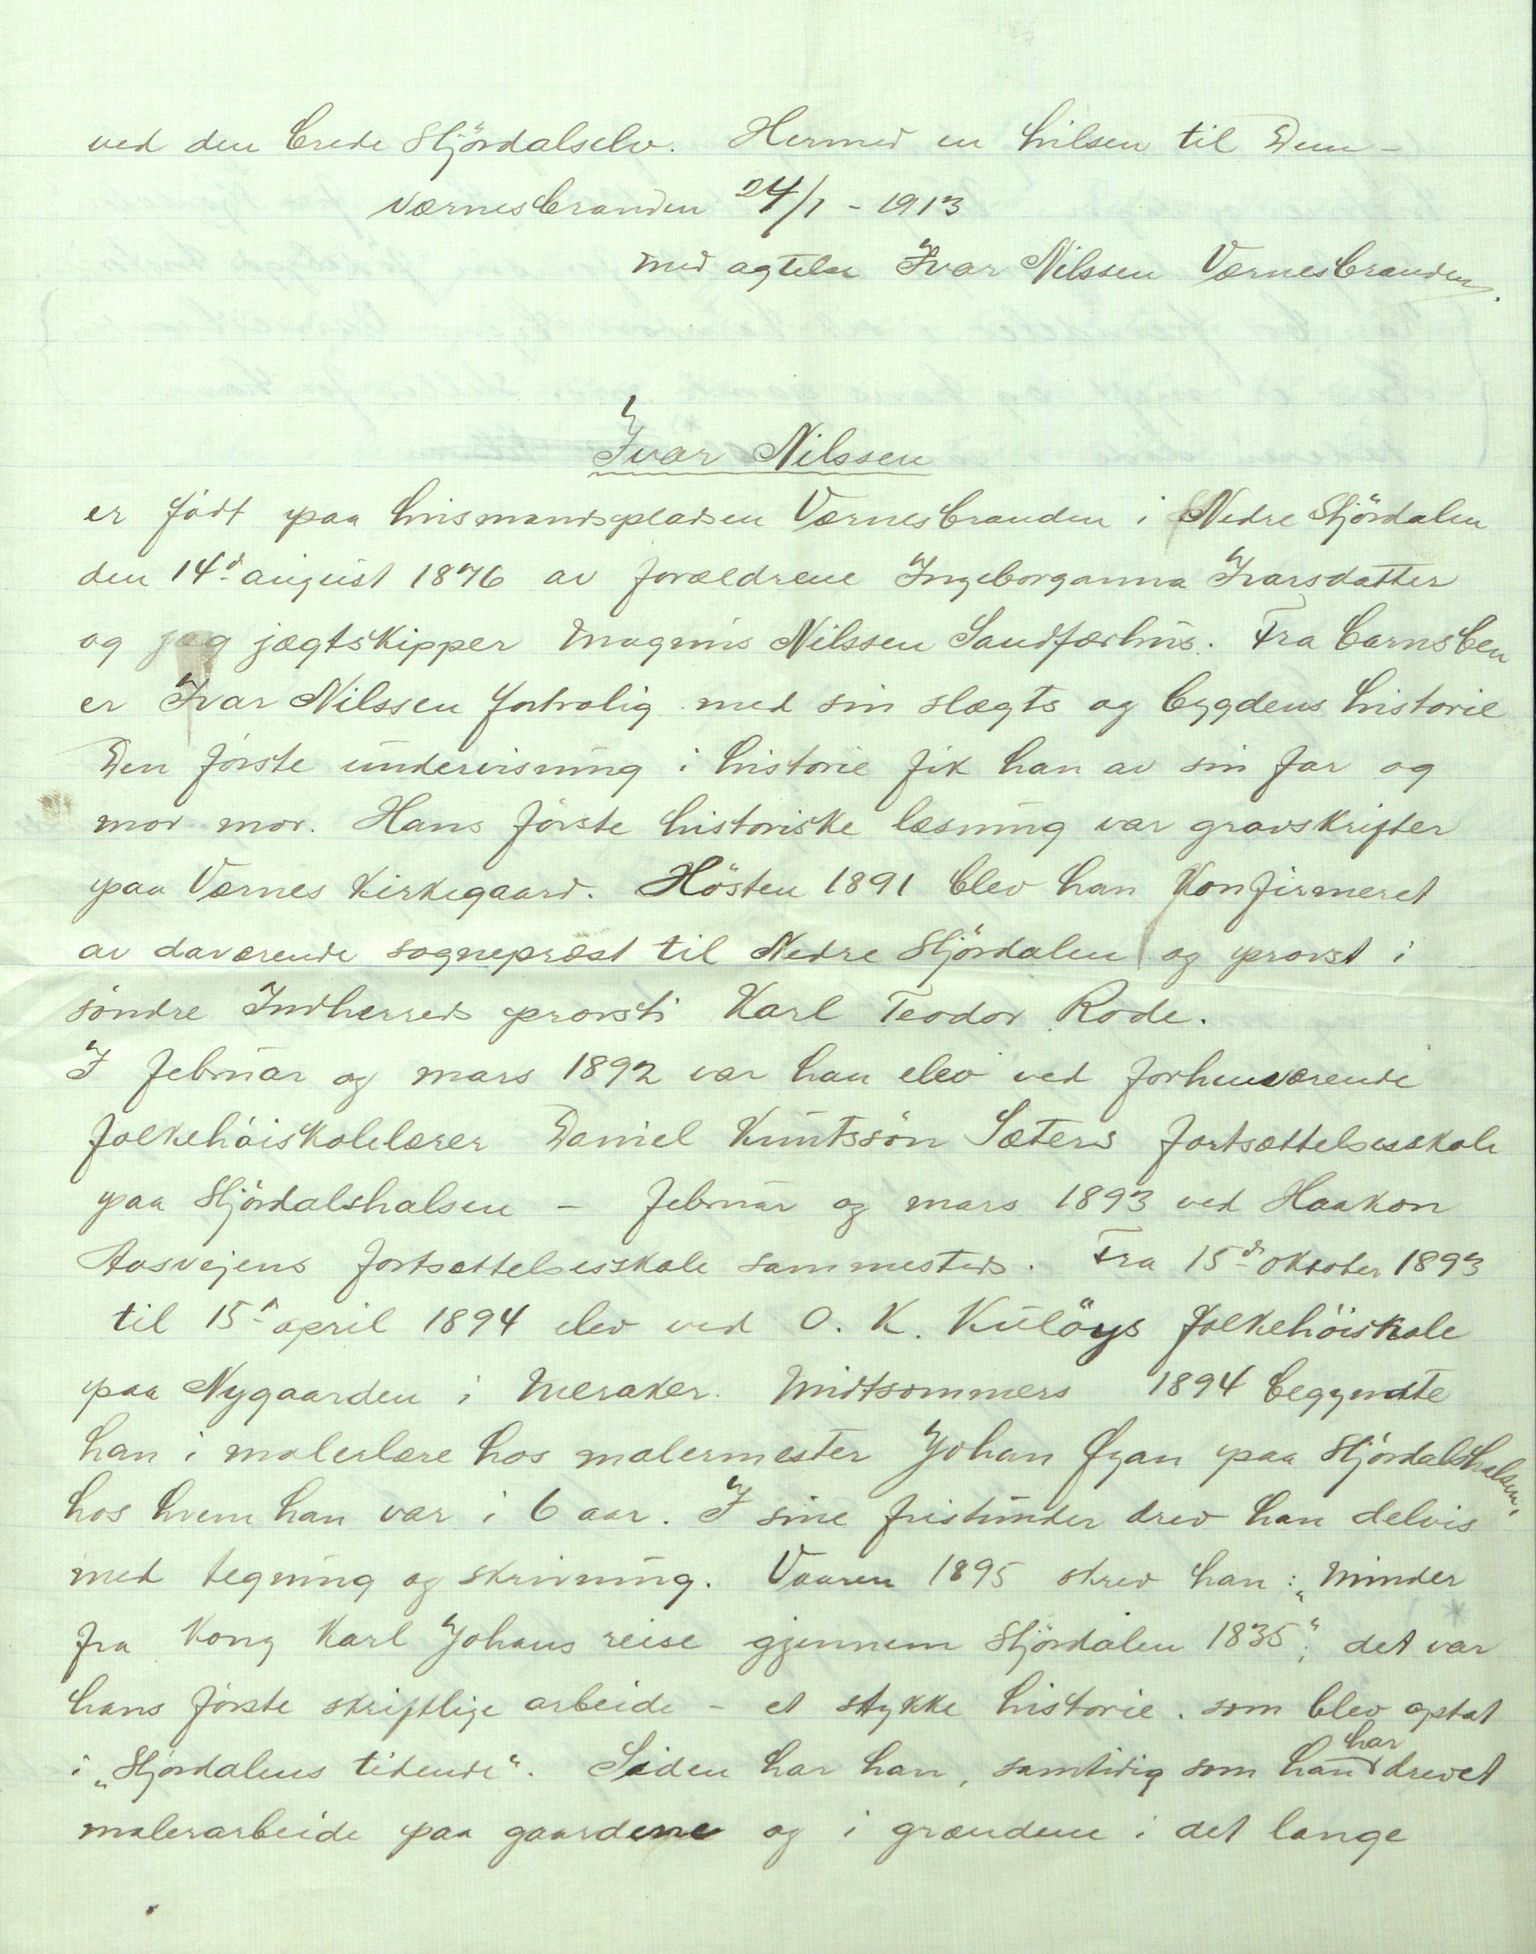 ved den brede Stjördalselv. Hermed en hilsen til Dem –
Værnesbranden 24/1 - 1913
med agtelse Ivar Nilssen Værnesbranden.
Ivar Nilssen
er född paa husmandspladsen Værnesbranden i Nedre Stjördalen
den 14d august 1876 av forældrene Ingeborganna Ivarsdatter
og jægtskipper Magnus Nilssen Sandfærhus. Fra barnsben
er Ivar Nilssen fortrolig med sin slægts og bygdens historie
Den förste undervisning i historie fik han av sin far og
mor mor. Hans förste historiske læsning var gravskrifter
paa Værnes kirkegaard. Hösten 1891 blev han konfirmeret
av daværende sogneprest til Nedre Stjördalen og provst i
söndre Indherreds provsti Karl Teodor Rode.
I februar og mars 1892 var han elev ved forhenværende
folkehöiskolelærer Daniel Knutssön Sæters fortsættelsesskole
paa Stjördalshalsen – februar og mars 1893 ved Haakon
Aasvejens fortsættelsesskole sammesteds. Fra 15d oktober 1893
til 15d april 1894 elev ved O. K. Kulöys folkehöiskole
paa Nygaarden i Meraker. Midtsommers 1894 begyndte
han i malerlære hos malermester Johan Øyan paa Stjördalshalsen,
hos hvem han var i 6 aar. I sine fristunder drev han delvis
med tegning og skrivning. Vaaren 1895 skrev han: „Minder
fra Kong Karl Johans reise gjennem Stjördalen 1835“; det var
hans förste skriftlige arbeide – et stykke historie. som blev optat
i „Stjördalens tidende“. Siden har han, samtidig som han har drevet
malerarbeide paa gaardene og i grændene i det lange